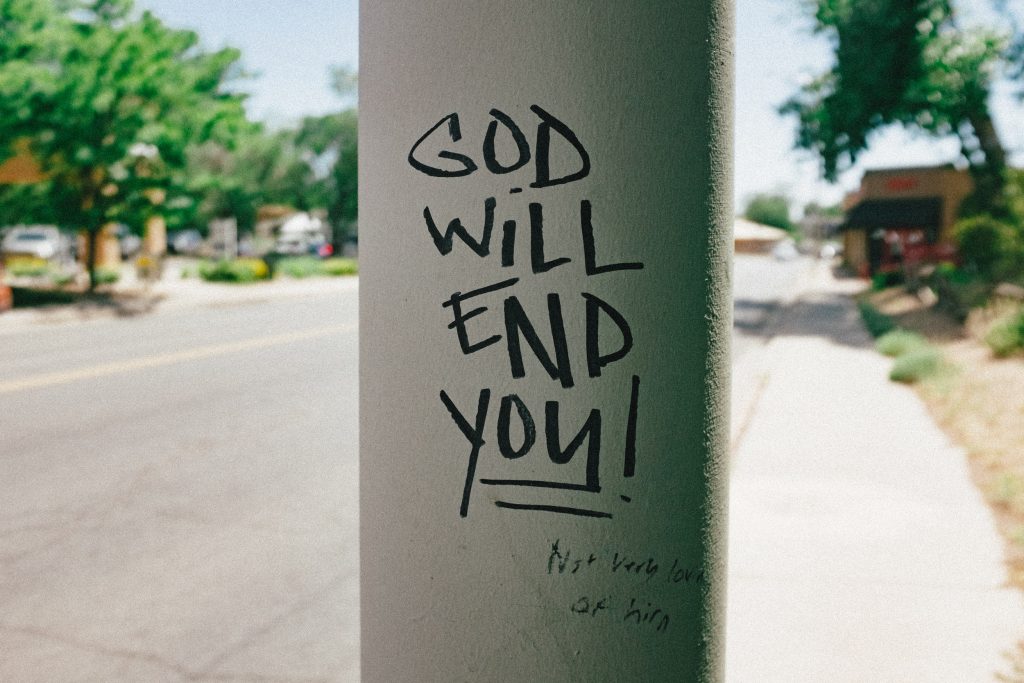 GOD
WiLL
END
YOU!
Not very lovin
of him